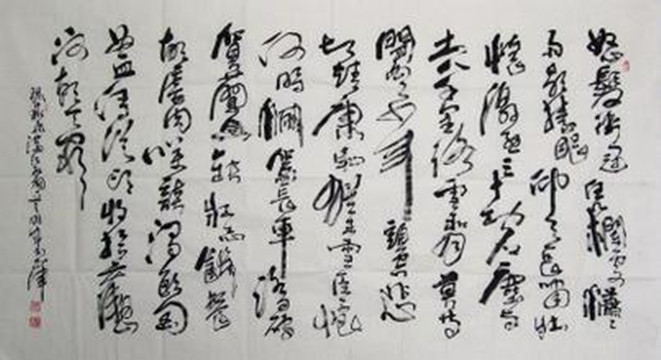 怒髮衝冠憑欄處瀟瀟
雨歇擡望眼仰天長嘯壯
懷激烈三十功名塵與
土八千里路雲和月莫等
閒白了少年頭空悲
切靖康恥猶未雪臣子恨
何時滅駕長車踏破
賀蘭山缺壯志飢餐
胡虜肉笑談渴飲匈
奴血待從頭收拾舊山
河朝天闕
岳飛滿江紅